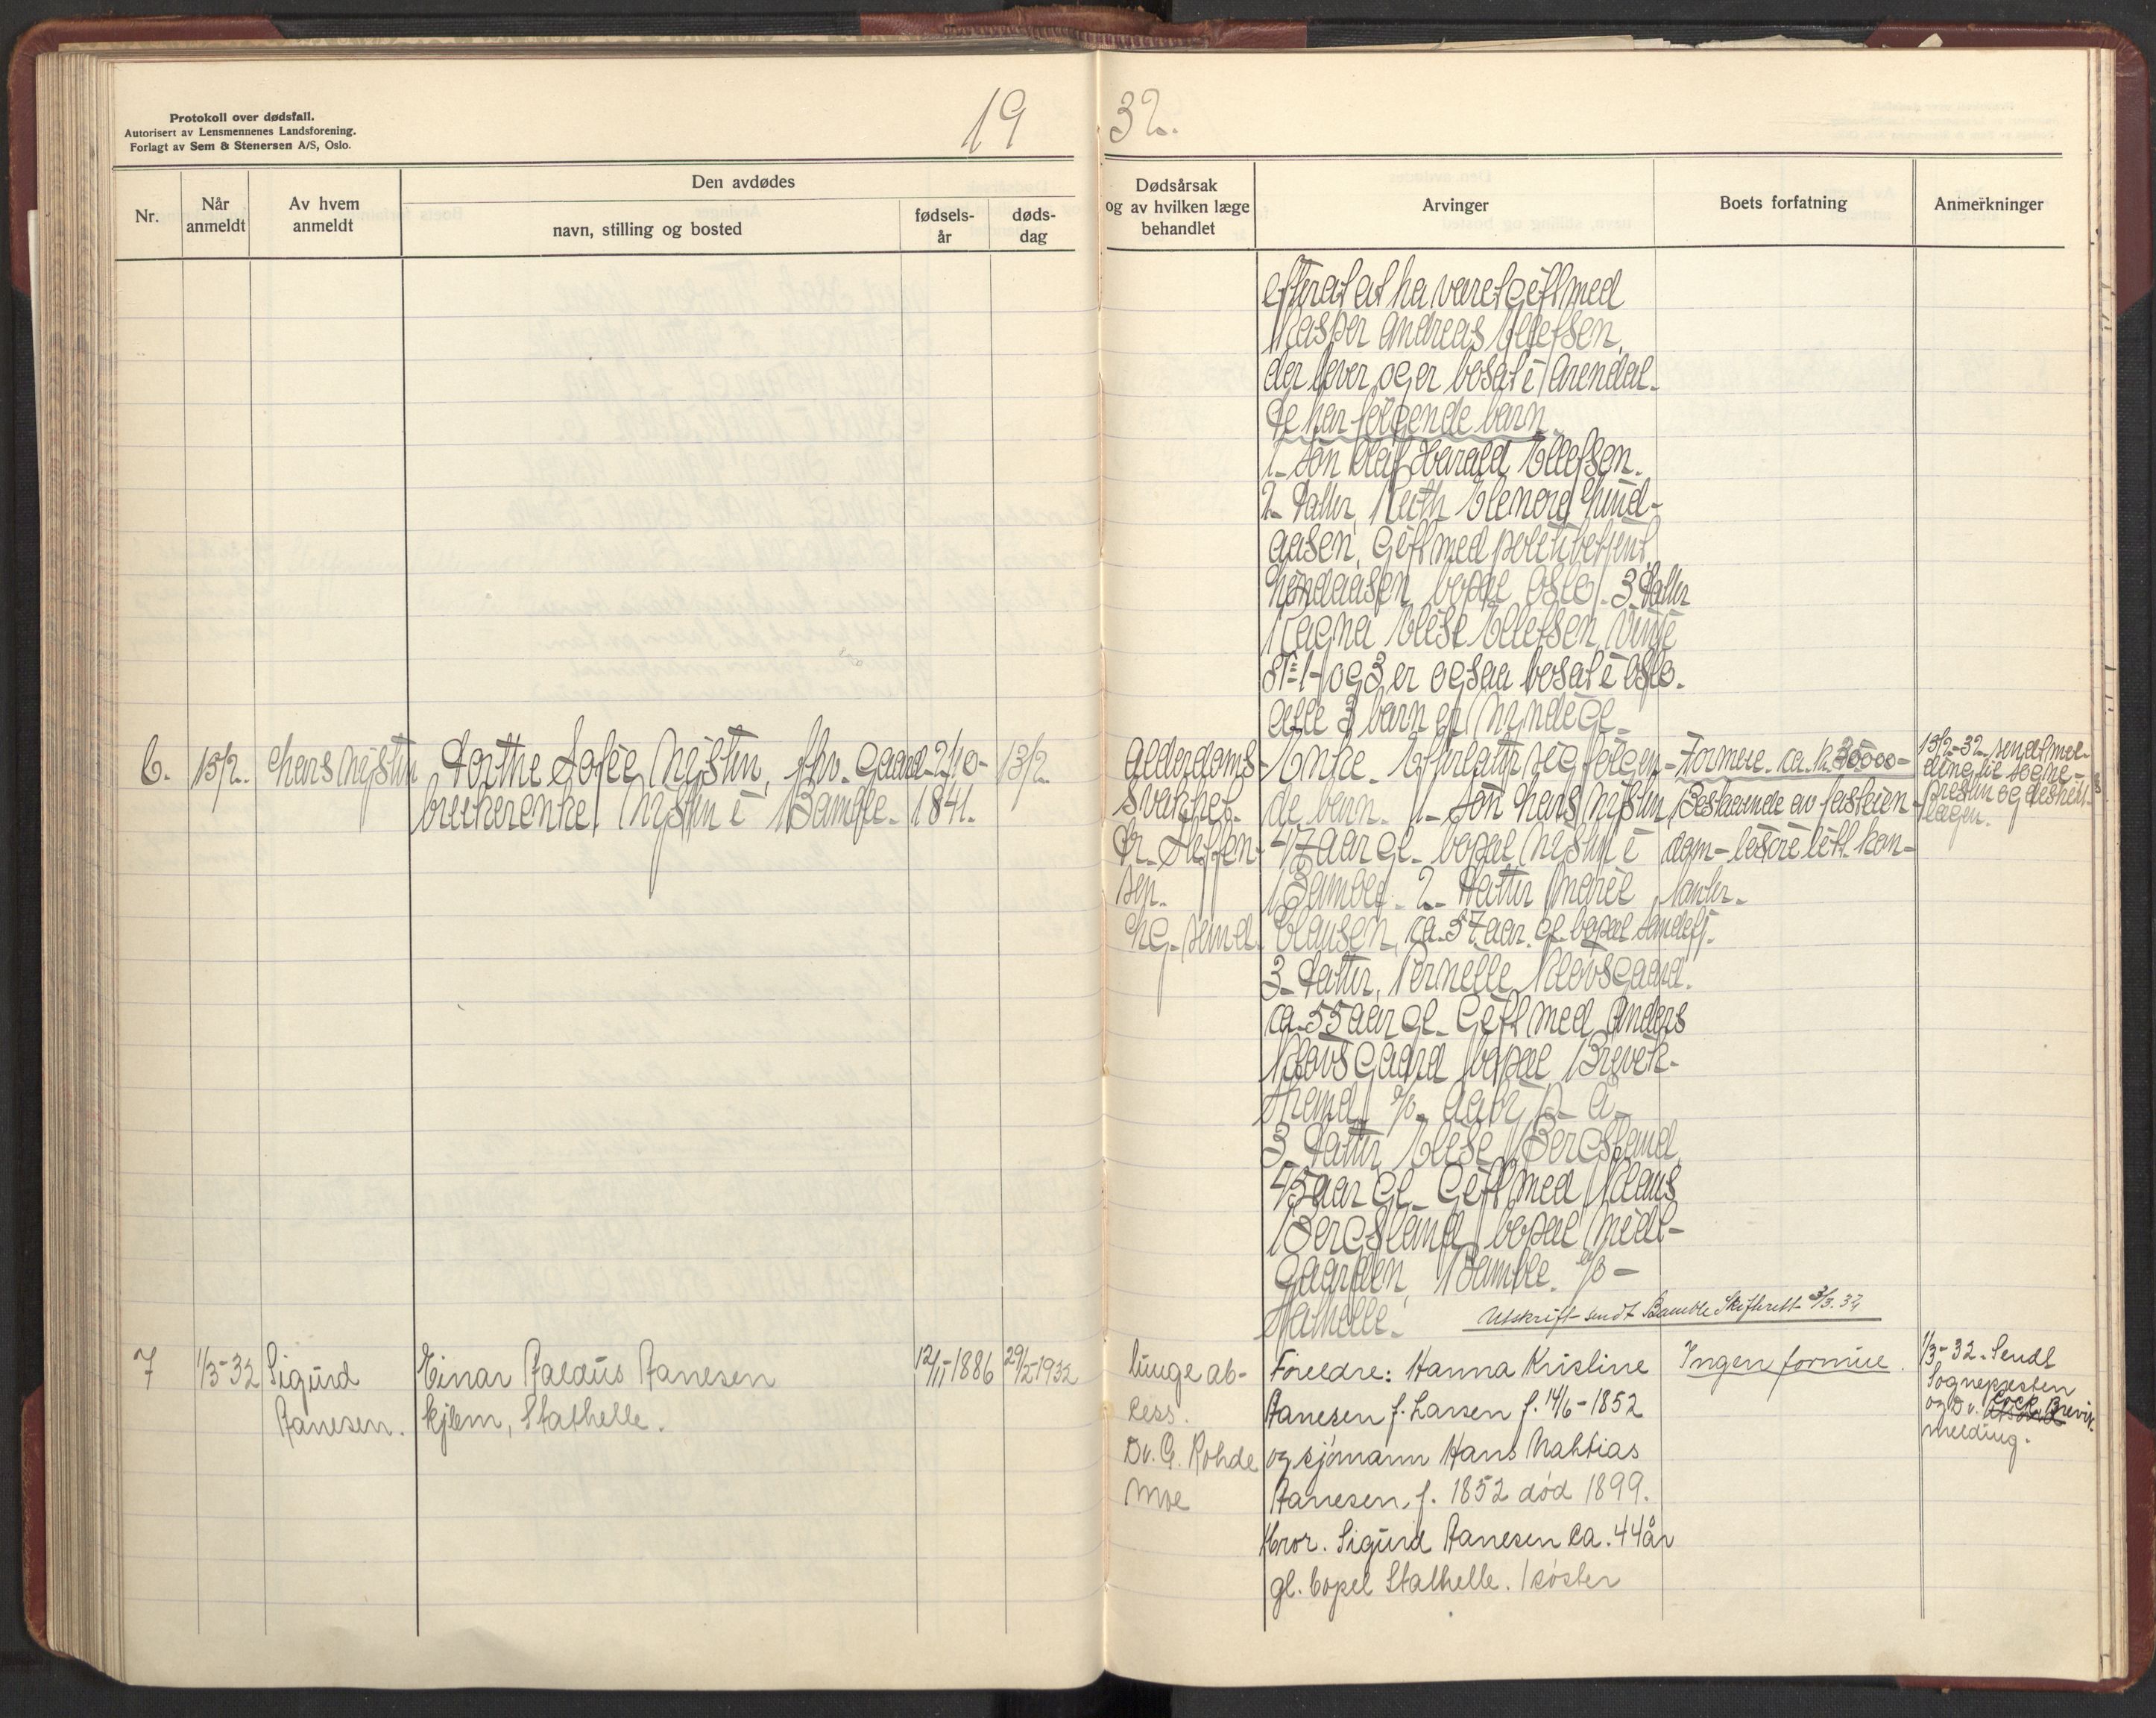 Protokoll over dødsfall.
Autorisert av Lensmennenes Landsforening.
Forlagt av Sem & Stenersen A/S, Oslo.
19
32.
Nr.
Når anmeldt
Av hvem anmeldt
Den avdødes
navn, stilling og bosted
fødsels-år
døds-dag
Dødsårsak
og av hvilken læge
behandlet
Arvinger
Boets forfatning
Anmerkninger
efterat at ha været gift med
Kasper Andreas Ellefsen,
der lever og er bosat i Arendal.
De har følgende barn
1. Søn Olaf Harald Ellefsen.
2. Datter, Ruth Elenore
aasen, Gift med politibetjent
bopæl Oslo. 3 Datter
Ragna Elise Ellefsen,
No 1 og 3 er ogsaa bosat i Oslo.
Alle 3 barn er myndige.
6.
15/2.
Hans Nistin
Dorthe Sofie Nistin, fhv. Gaard-
brukerenke, Nistin i Bamble.
2/10-
1841.
13/2.
Alderdoms-
svakhet.
Dr. Steffen-
sen.
Enke. Efterlater sig følgen-
de barn. 1. Søn Hans Nistin
47 aar gl. bopæl Nistin i
Bamble. 2. Datter Marie
Clausen, ca. 57 aar gl. bopæl Sandefj.
3. Datter, Pernelle Kløvsgaard.
ca. 55 aar gl. Gift med Anders
Kløvsgaard bopæl Brevik-
strand
3. Datter Elise Bergsland
45 aar gl. Gift med Klaus
Bergsland, bopæl Midt-
gaarden, Bamble. p/o -
Stathelle.
Formue ca. kr 30000-
Bestaaende av fasteien-
dom - løsøre litt kon-
tanter.
15/2-32 sendt mel-
ding til sogne-
presten og distrikts-
lægen.
Utskrift sendt Bamble Skifterett 3/3.32
7
1/3-32
Sigurd
Aanesen.
Einar Aaldus Aanesen
Kjlem, Stathelle.
12/11-1886
29/2-1932
Lunge ab-
cess.
Dr. G. Rohde
Moe
Foreldre: Hanna Kristine
Aanesen f. Larsen f. 14/6-1852
og sjømann Hans Mathias
Aanesen, f. 1852 død 1899.
Bror. Sigurd Aanesen ca. 44 år
gl. bopel Stathelle. 1 søster
Ingen formue.
1/3-32. Sendt
Sognepresten
og Dr. Cock, Brevik
melding.